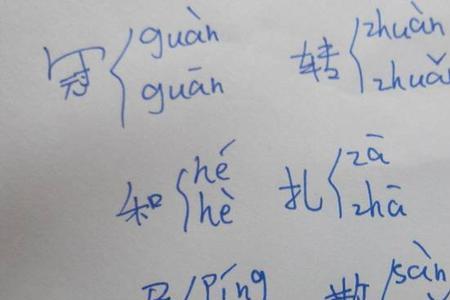 冠{guàn guān 转{zhuàn zhuǎn
和{hé hè 扎{zā zhā
píng 散{sàn